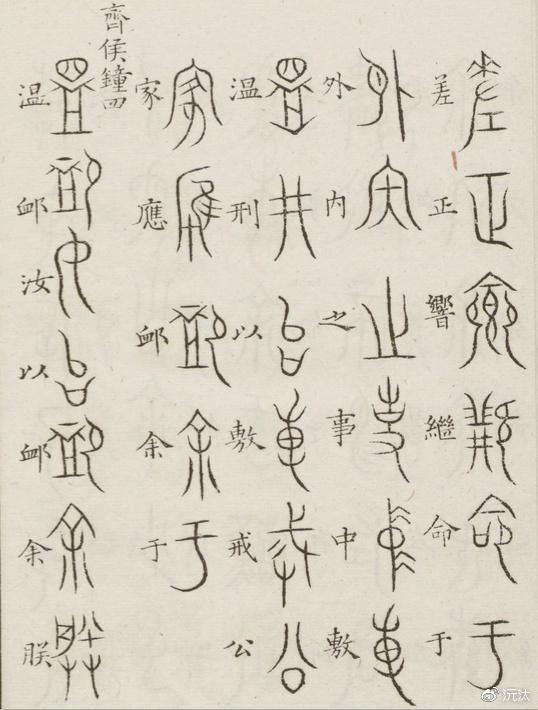 差正響繼命于
外内之事中敷
温刑以敷戒公
家應衈余于
温衈汝以衈余朕
齊侯鐘四
沅汰